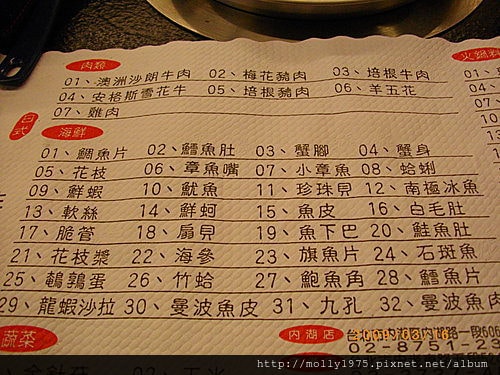 肉類
火鍋料
01、澳洲沙朗牛肉 02、梅花豬肉 03、培根牛肉
04、安格斯雪花牛 05、培根豬肉 06、羊五花
07、雞肉
日式
海鮮
01、鯛魚片 02、鱈魚肚 03、蟹腳 04、蟹身
05、花枝 06、章魚嘴 07、小章魚 08、蛤蜊
09、鮮蝦 10、魷魚 11、珍珠貝 12、南極冰魚
13、軟絲 14、鮮蚵 15、魚皮 16、白毛肚
17、脆管 18、扇貝 19、魚下巴 20、鮭魚肚
21、花枝漿 22、海參 23、旗魚片 24、石斑魚
25、鵪鶉蛋 26、竹蛤 27、鮑魚角 28、鱈魚片
29、龍蝦沙拉 30、曼波魚皮 31、九孔 32、曼波魚肉
蔬菜
內湖店
02-8751-23
http://molly1975.pixnet.net/album